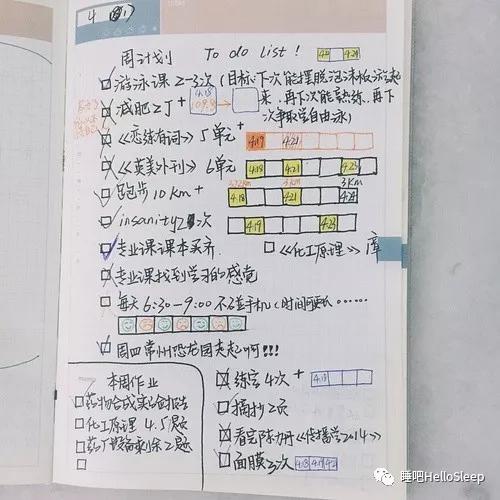 4
周计划 To do list!
4.18 4.24
游泳课 2-3次 (目标:下次能摆脱泡沫板游起来,再下次能熟练,再下次争取学自由泳)
减肥2丁+ 4.18 109.9 →
《恋练有词》5单元+ 4.19 4.21
《英美外刊》6单元 4.18 4.21 4.23
跑步10km+ 3KM 3KM 4.18 4.21 4.24
insanity 2次 4.19 4.23
专业课课本买齐 《化工原理》库
专业课找到学习的感觉
每天6:30-9:00不碰手机(时间
周四常州恐龙园走起啊!!!
本周作业
药物合成实验报告
化工原理 4.5题
药厂设备剩余2题
练字4次+ 4.18
摘抄2页
看完陈丹《传播学2014》
面膜3次 4.18 4.19
睡吧HelloSleep